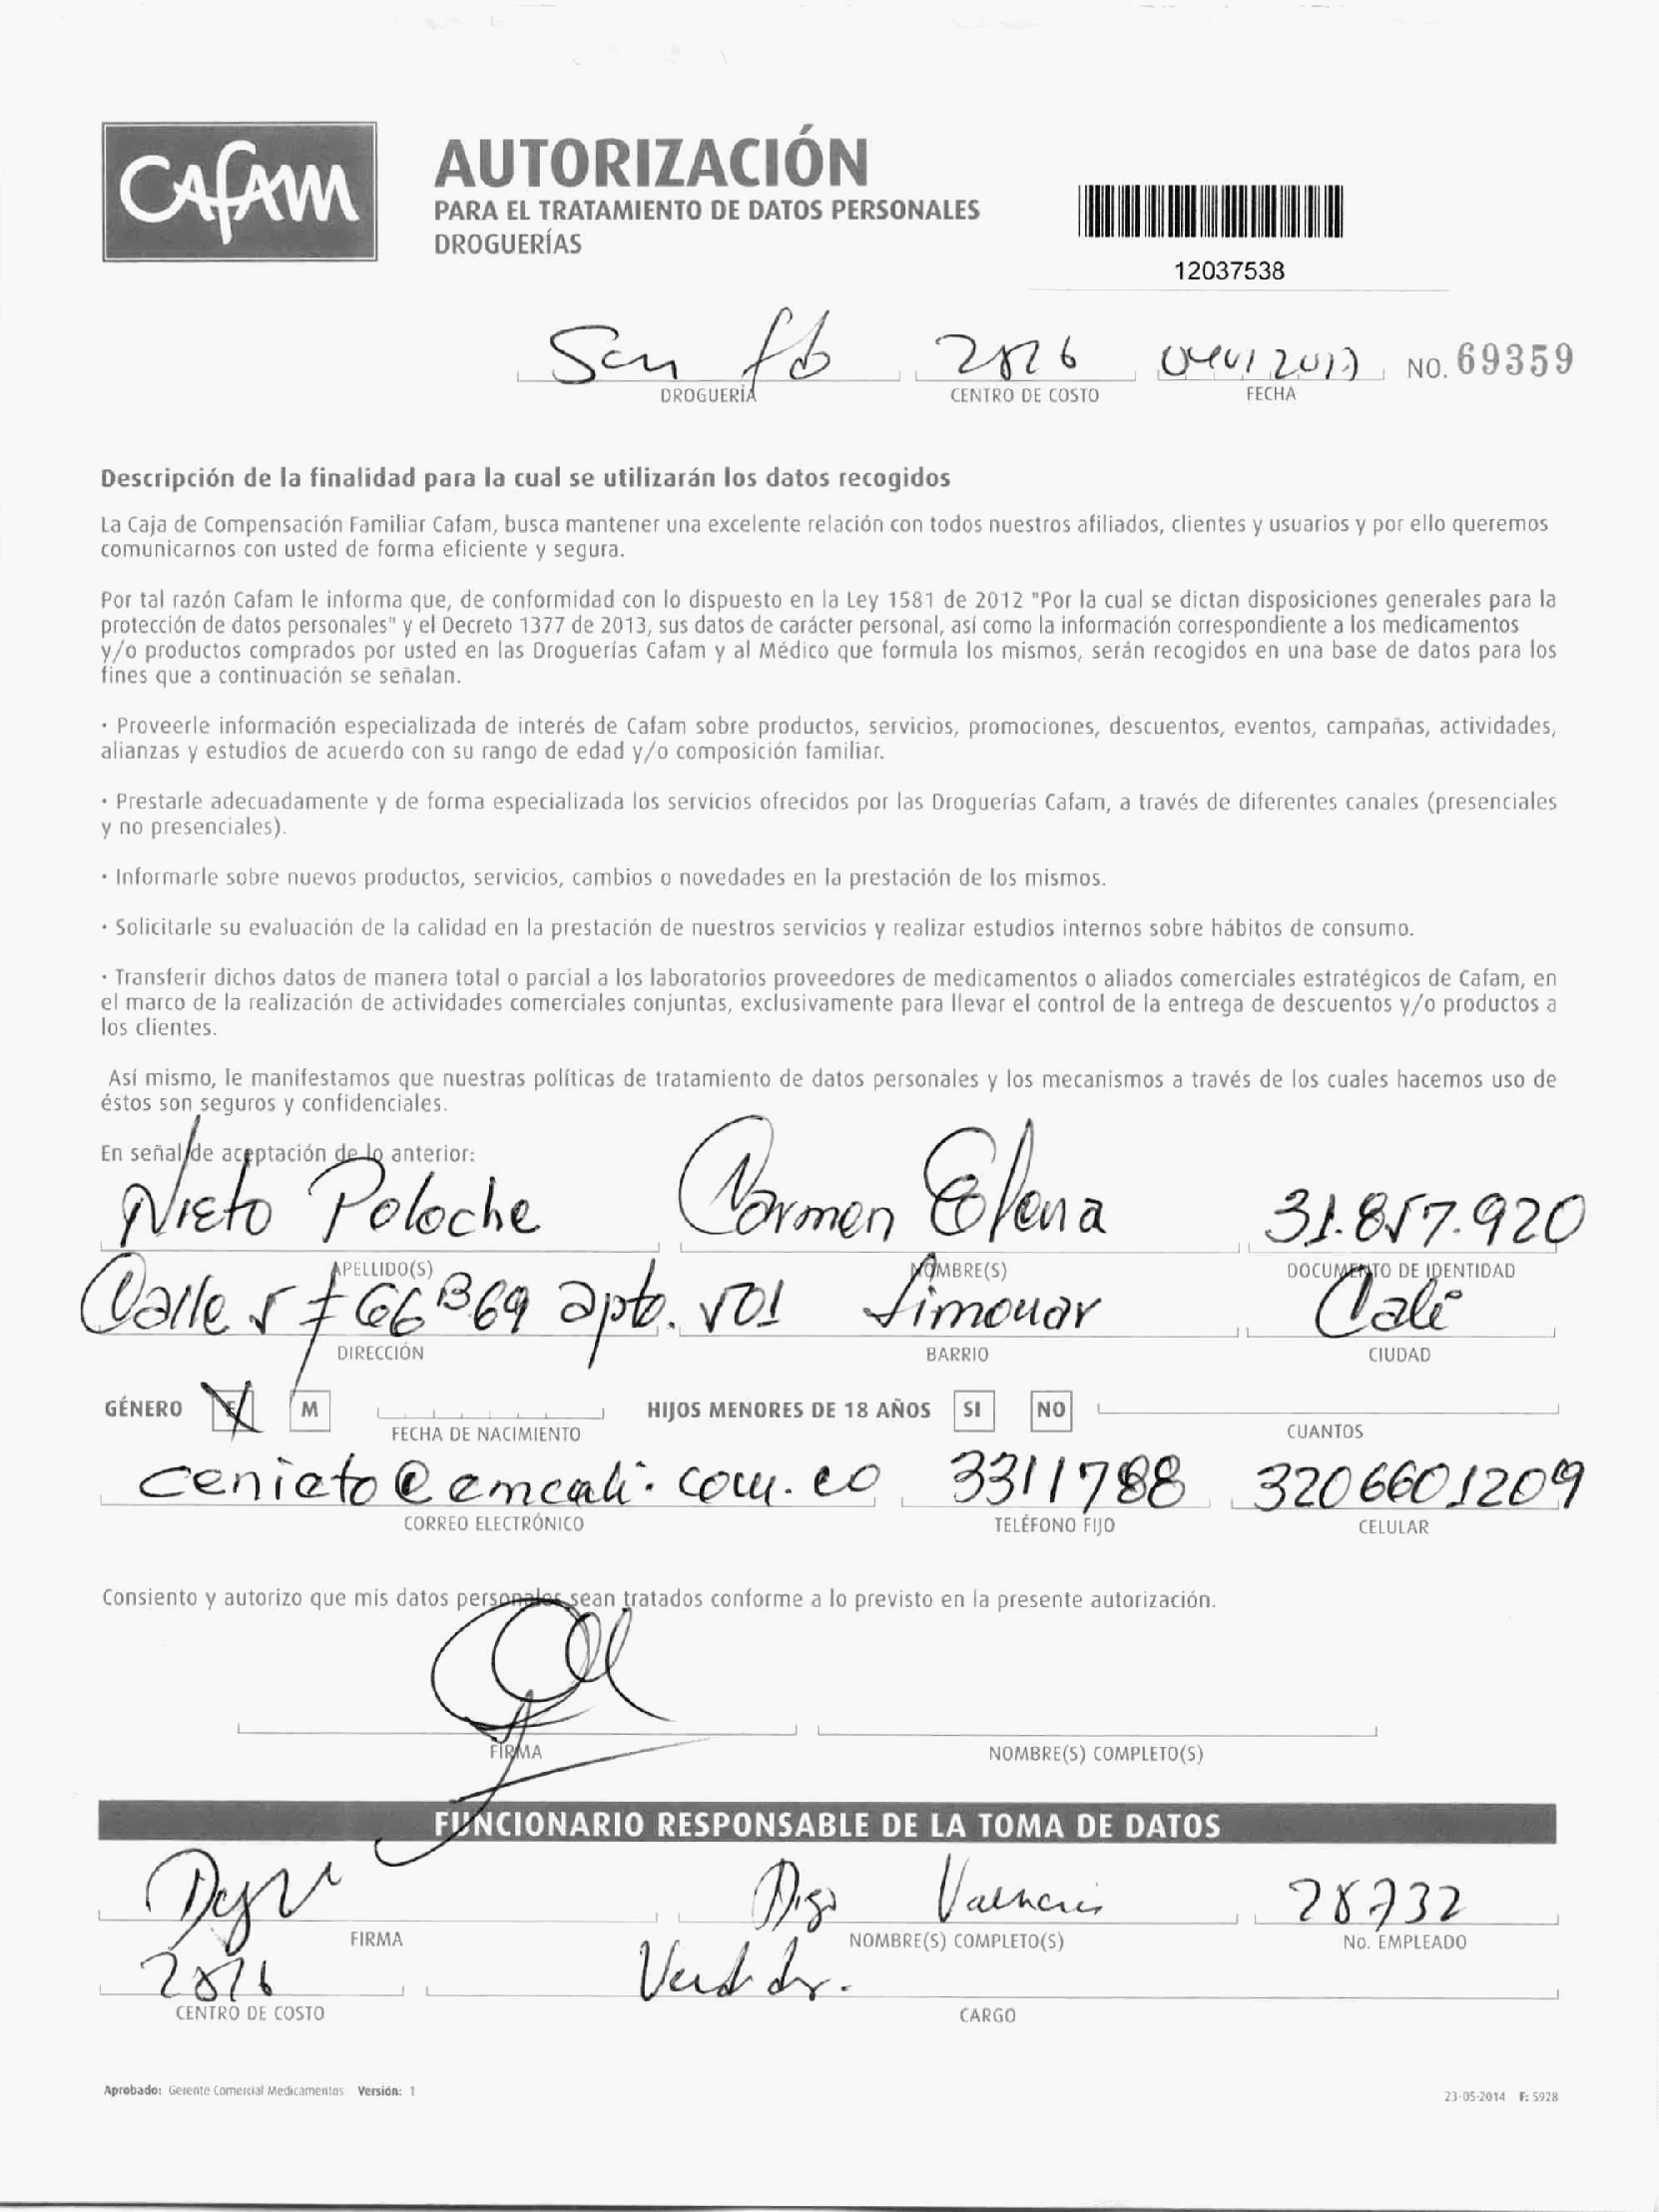 CAFAM
AUTORIZACIÓN
PARA EL TRATAMIENTO DE DATOS PERSONALES
DROGUERÍAS
12037538
San fdo 2826 NO. 69359
DROGUERÍA CENTRO DE COSTO FECHA
Descripción de la finalidad para la cual se utilizarán los datos recogidos
La Caja de Compensación Familiar Cafam, busca mantener una excelente relación con todos nuestros afiliados, clientes y usuarios y por ello queremos
comunicarnos con usted de forma eficiente y segura.
Por tal razón Cafam le informa que, de conformidad con lo dispuesto en la Ley 1581 de 2012 "Por la cual se dictan disposiciones generales para la
protección de datos personales" y el Decreto 1377 de 2013, sus datos de carácter personal, así como la información correspondiente a los medicamentos
y/o productos comprados por usted en las Droguerías Cafam y al Médico que formula los mismos, serán recogidos en una base de datos para los
fines que a continuación se señalan.
· Proveerle información especializada de interés de Cafam sobre productos, servicios, promociones, descuentos, eventos, campañas, actividades,
alianzas y estudios de acuerdo con su rango de edad y/o composición familiar.
· Prestarle adecuadamente y de forma especializada los servicios ofrecidos por las Droguerías Cafam, a través de diferentes canales (presenciales
y no presenciales).
· Informarle sobre nuevos productos, servicios, cambios o novedades en la prestación de los mismos.
· Solicitarle su evaluación de la calidad en la prestación de nuestros servicios y realizar estudios internos sobre hábitos de consumo.
· Transferir dichos datos de manera total o parcial a los laboratorios proveedores de medicamentos o aliados comerciales estratégicos de Cafam, en
el marco de la realización de actividades comerciales conjuntas, exclusivamente para llevar el control de la entrega de descuentos y/o productos a
los clientes.
Así mismo, le manifestamos que nuestras políticas de tratamiento de datos personales y los mecanismos a través de los cuales hacemos uso de
éstos son seguros y confidenciales.
En señal de aceptación de lo anterior:
Nieto Poloche Carmen Elena 31.857.920
APELLIDO(S) NOMBRE(S) DOCUMENTO DE IDENTIDAD
Calle 5 # 66B69 apto. 501 Limonar Cali
DIRECCIÓN BARRIO CIUDAD
GÉNERO F M HIJOS MENORES DE 18 AÑOS SI NO
FECHA DE NACIMIENTO CUANTOS
cenieto@emcali.com.co 3311788 3206601209
CORREO ELECTRÓNICO TELÉFONO FIJO CELULAR
Consiento y autorizo que mis datos personales sean tratados conforme a lo previsto en la presente autorización.
FIRMA NOMBRE(S) COMPLETO(S)
FUNCIONARIO RESPONSABLE DE LA TOMA DE DATOS
Valencia 28732
FIRMA NOMBRE(S) COMPLETO(S) No. EMPLEADO
2826
CENTRO DE COSTO CARGO
Aprobado: Gerente Comercial Medicamentos Versión: 1 23-05-2014 F: 5928